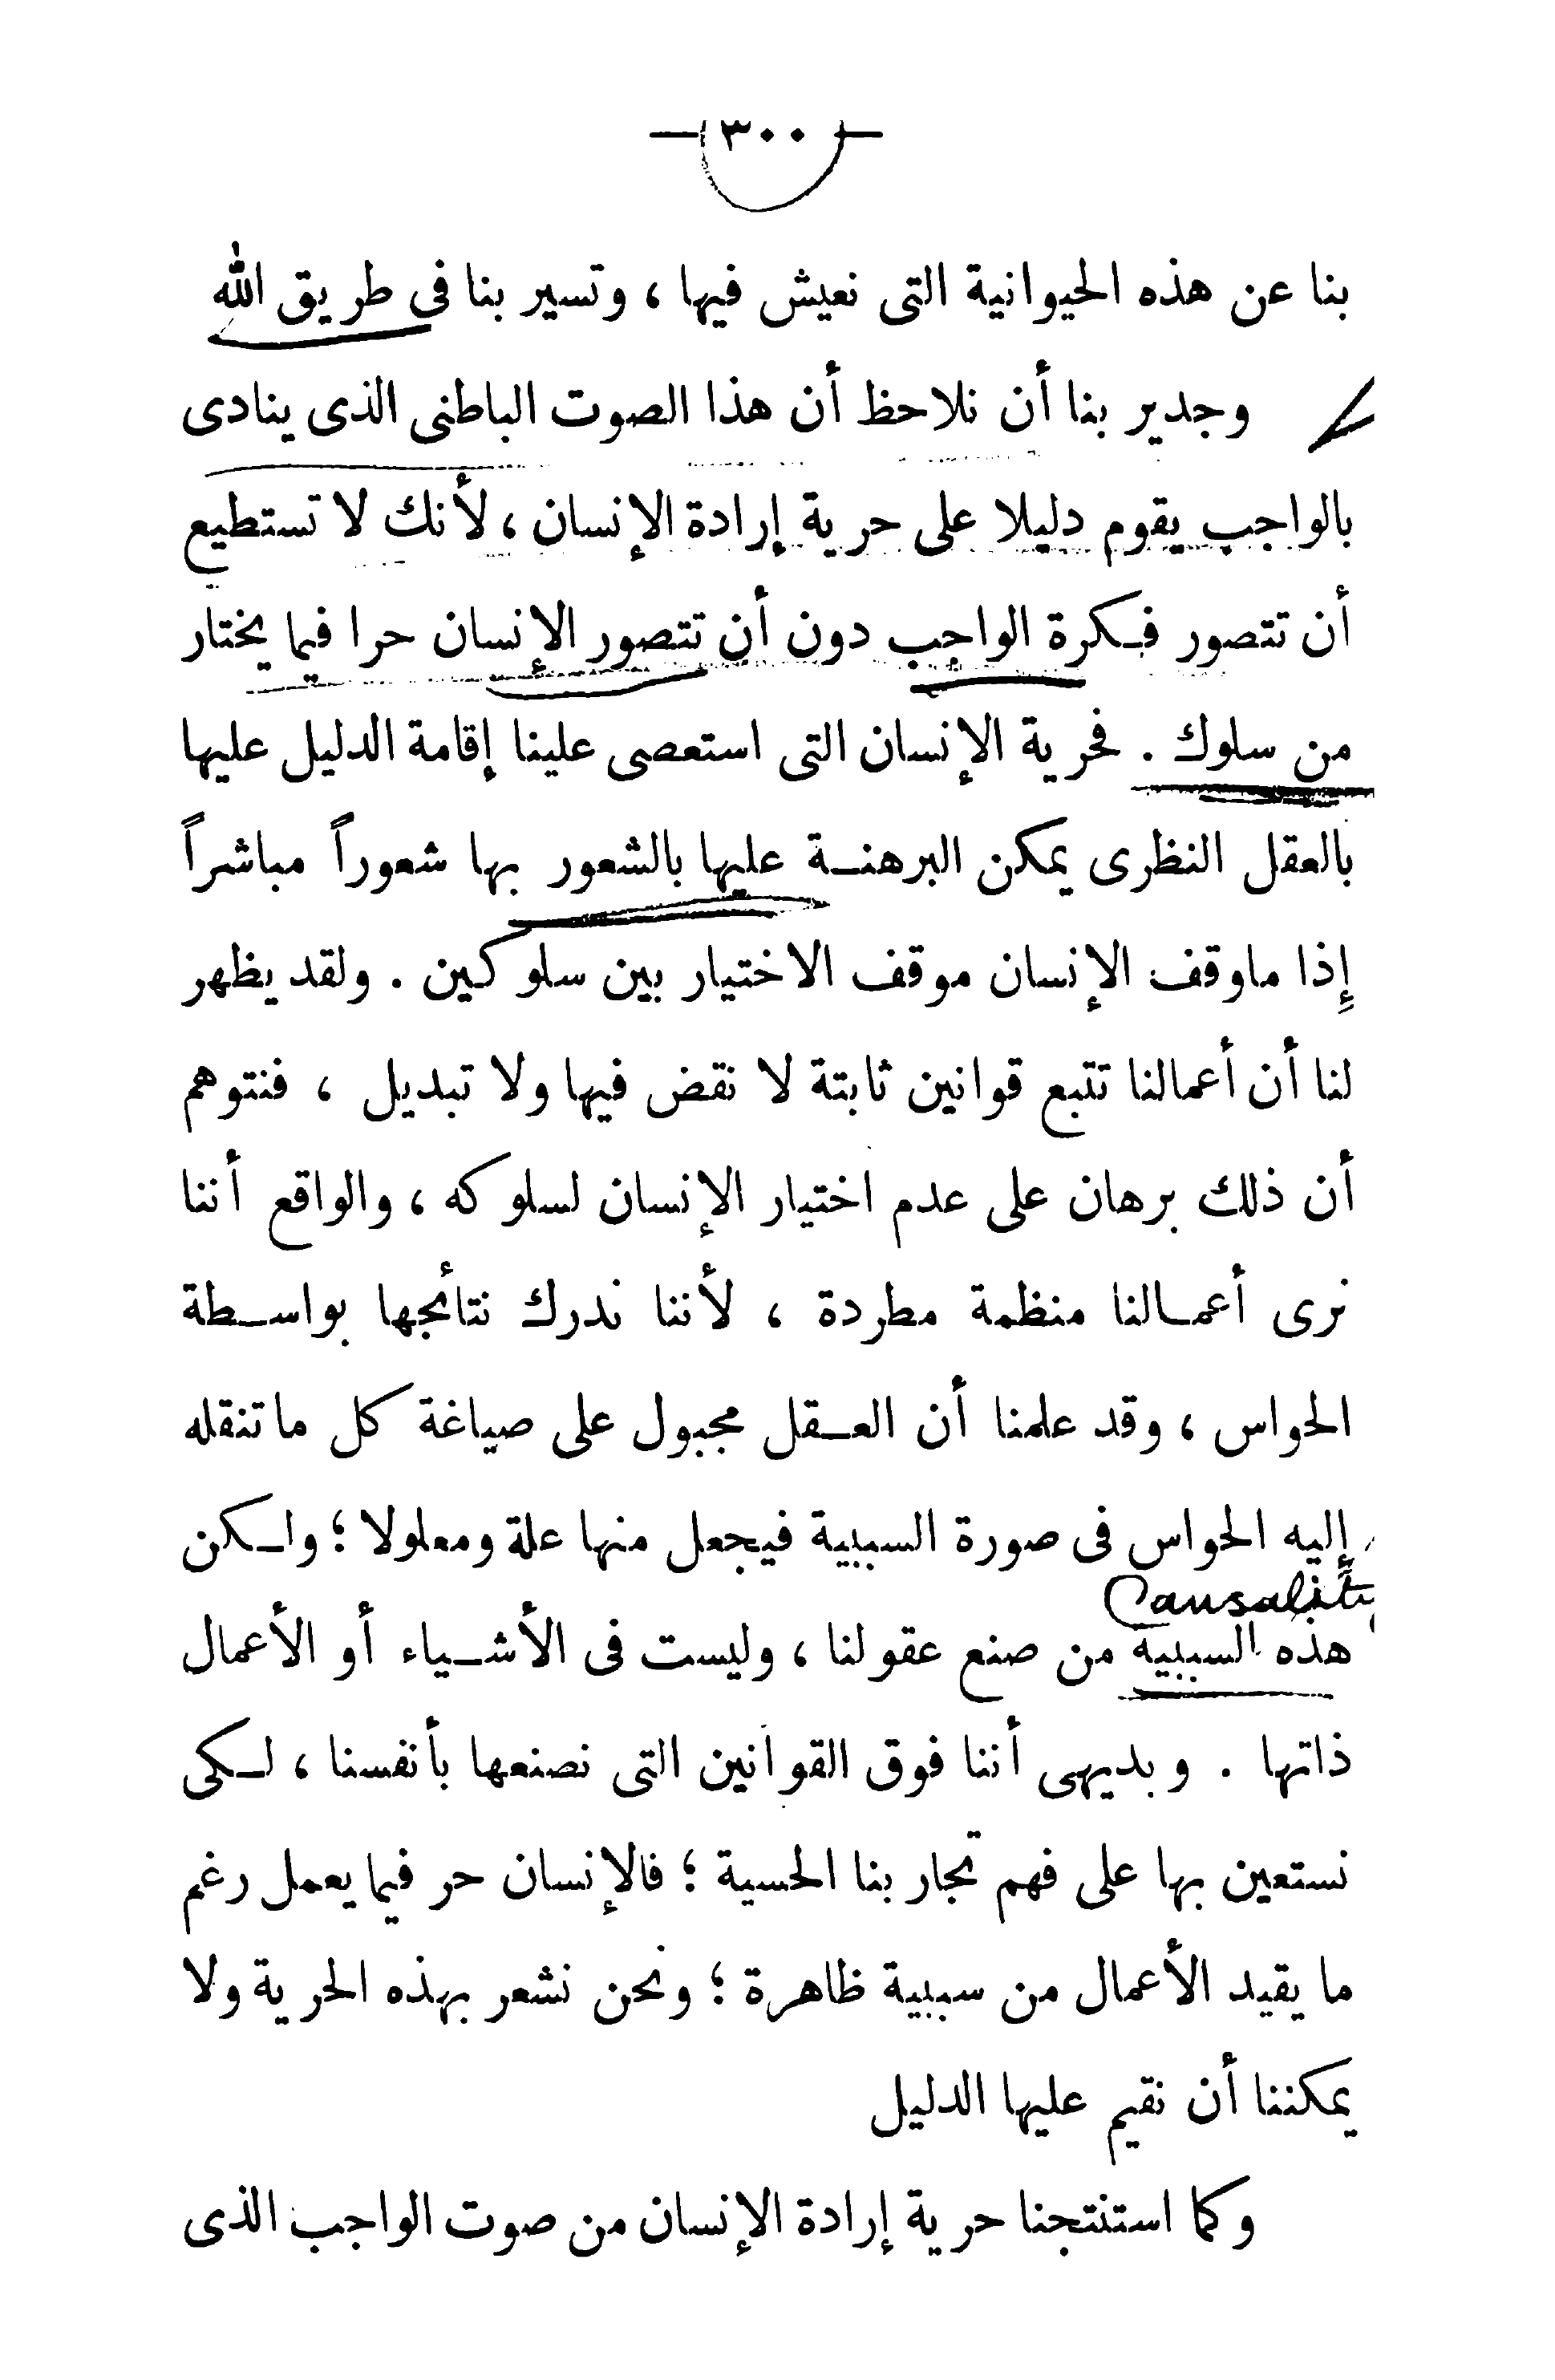 — ٣٠٠ —
بنا عن هذه الحيوانية التى نعيش فيها ، وتسير بنا فى طريق الله
وجدير بنا أن نلاحظ أن هذا الصوت الباطنى الذى ينادى
بالواجب يقوم دليلا على حرية إرادة الإنسان ، لأنك لا تستطيع
أن تتصور فكرة الواجب دون أن تتصور الإنسان حرا فيما يختار
من سلوك . فحرية الإنسان التى استعصى علينا إقامة الدليل عليها
بالعقل النظرى يمكن البرهنة عليها بالشعور بها شعوراً مباشراً
إذا ماوقف الإنسان موقف الاختيار بين سلوكين . ولقد يظهر
لنا أن أعمالنا تتبع قوانين ثابتة لا نقض فيها ولا تبديل ، فنتوهم
أن ذلك برهان على عدم اختيار الإنسان لسلوكه ، والواقع أننا
نرى أعمالنا منظمة مطردة ، لأننا ندرك نتائجها بواسطة
الحواس ، وقد علمنا أن العقل مجبول على صياغة كل ما تنقله
إليه الحواس فى صورة السببية فيجعل منها علة ومعلولا ؛ ولكن
Causality
هذه السببية من صنع عقولنا ، وليست فى الأشياء أو الأعمال
ذاتها . وبديهى أننا فوق القوانين التى نصنعها بأنفسنا ، لكى
نستعين بها على فهم تجاربنا الحسية ؛ فالإنسان حر فيما يعمل رغم
ما يقيد الأعمال من سببية ظاهرة ؛ ونحن نشعر بهذه الحرية ولا
يمكننا أن نقيم عليها الدليل
وكما استنتجنا حرية إرادة الإنسان من صوت الواجب الذى